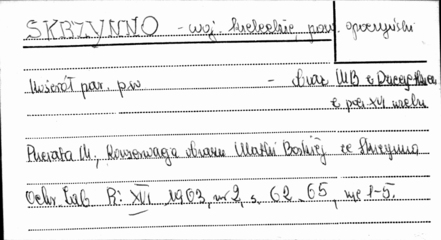 SKRZYNNO - woj. kieleckie, pow. opoczyński
Kościół par. p.w - obraz MB z Dzieciątkiem
z poł. XVI wieku
Pierata M., Konserwacja obrazu Matki Boskiej ze Skrzynna
Ochr. Zab. R: XVI 1963, nr 2, s. 62-65, il. 1-5.